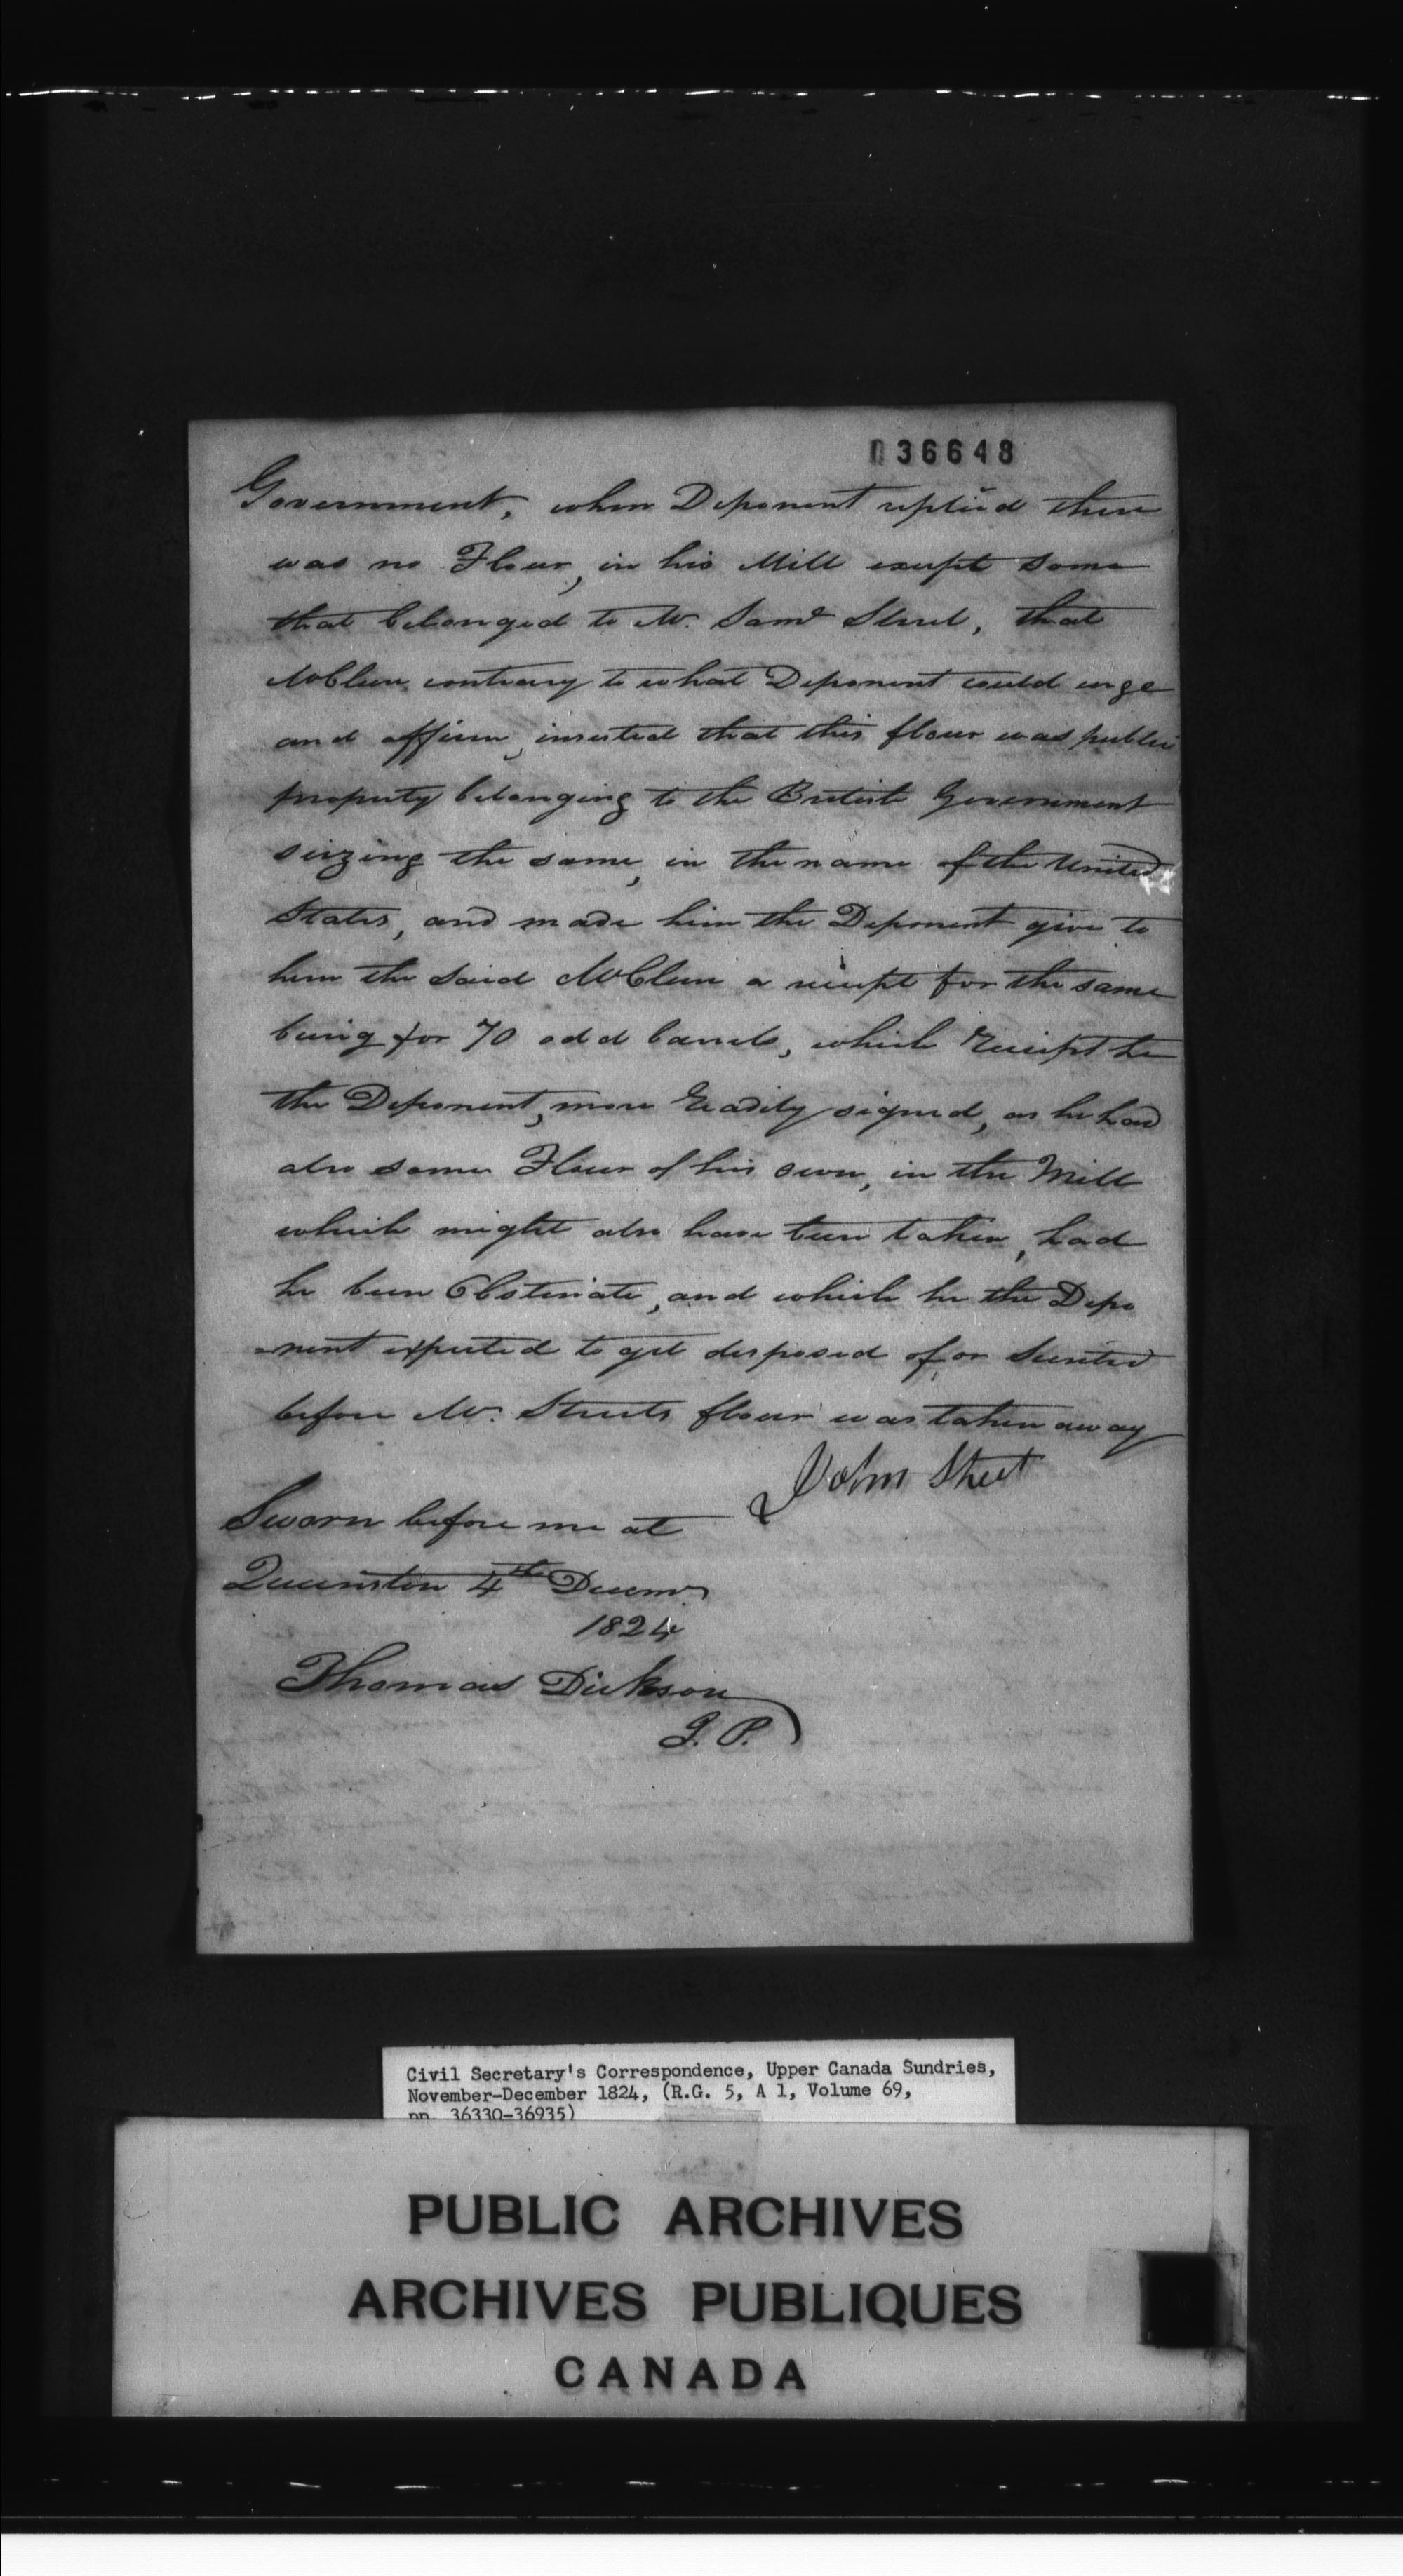 036648
Government, when Deponent replied there
was no Flour, in his Mill except some
that belonged to Mr. Saml Street, that
McClure contrary to what Deponent could urge
and affirm, insisted that this flour was public
property belonging to the British Government
seizing the same, in the name of the United
States, and made him the Deponent give to
him the said McClure a receipt for the same
being for 70 odd barrels, which Receipt he
the Deponent, more Readily signed, as he had
also some Flour of his own, in the Mill
which might also have been taken, had
he been Obstinate, and which he the Depo
-nent expected to get disposed of, or Secreted
before Mr. Streets flour was taken away
John Street
Sworn before me at
Queenston 4th Decemr.
1824
Thomas Dickson
J. P.
Civil Secretary's Correspondence, Upper Canada Sundries,
November-December 1824, (R.G. 5, A 1, Volume 69,
pp. 36330-36935)
PUBLIC ARCHIVES
ARCHIVES PUBLIQUES
CANADA